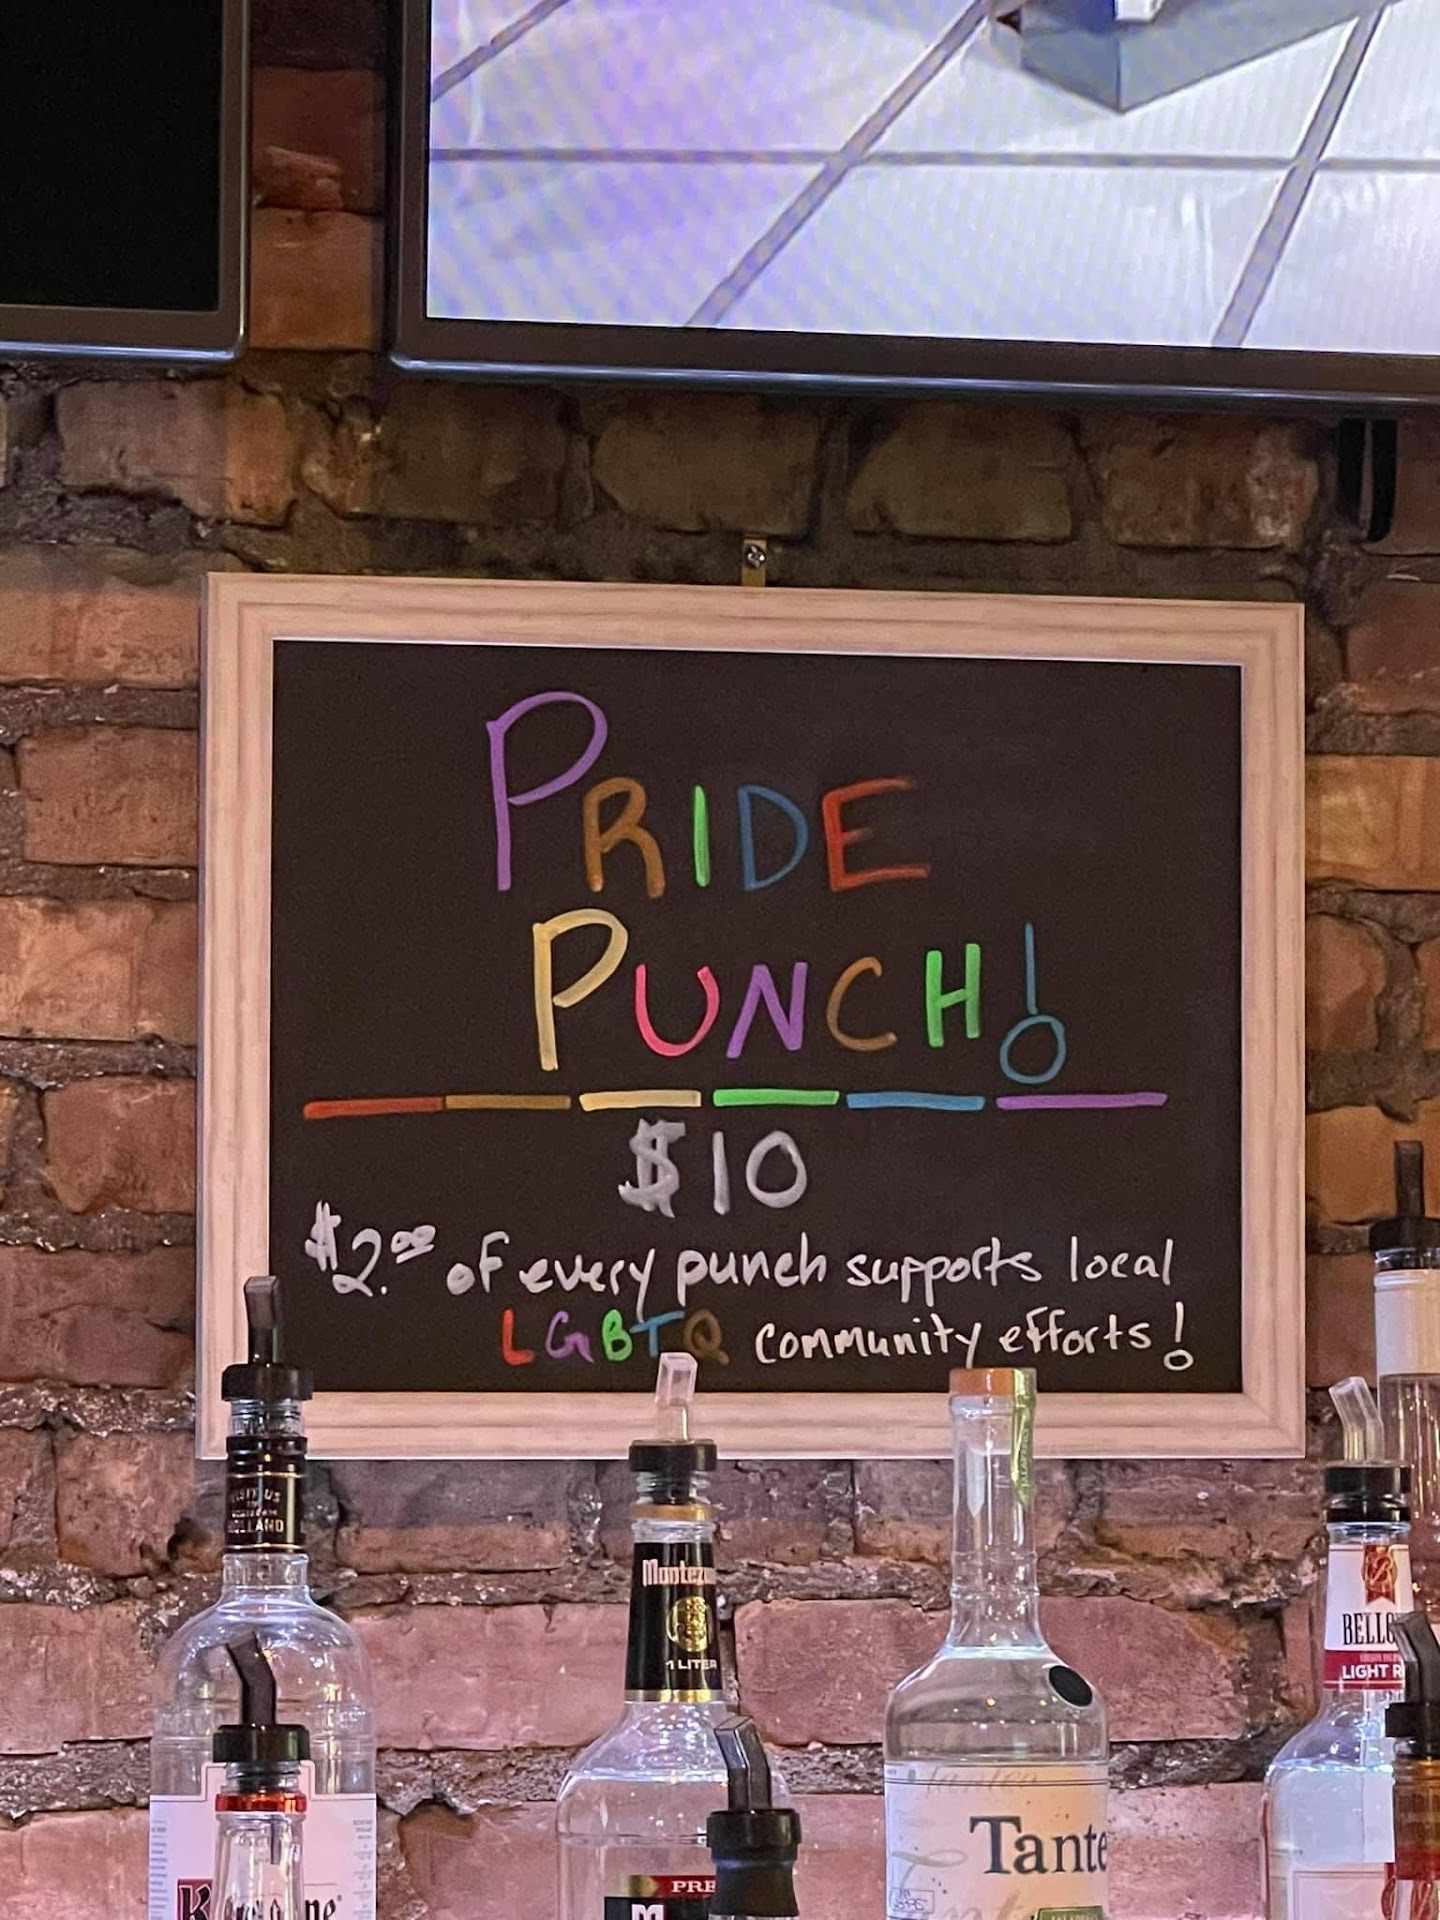 PRIDE
PUNCH!
$10
$2.00 of every punch supports local
LGBTQ community efforts!
VISIT US
HOLLAND
Montezu
1 LITER
LIGHT R
Tante
PRE
JALAPEÑO